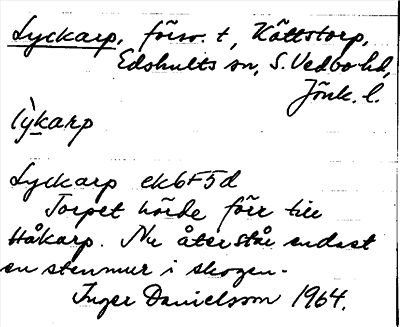 Lyckarp, försv. t, Kättstorp,
Edshults sn, S. Vedbo hd,
Jönk. l.
lỳkarp
Lyckarp ek6F5d
Torpet hörde förr till
Håkarp. Nu återstår endast
en stenmur i skogen.
Inger Danielsson 1964.